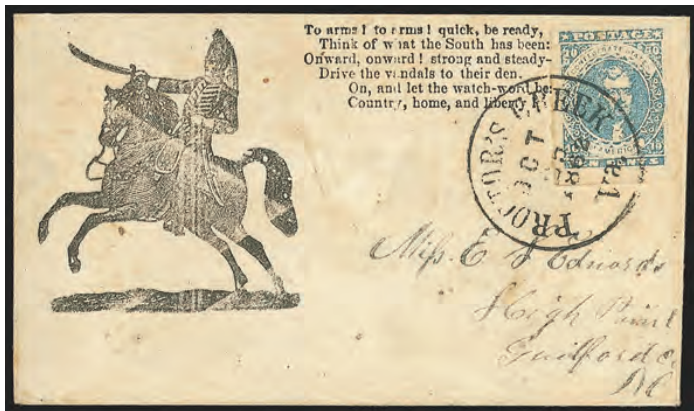 To arms ! to arms ! quick, be ready,
Think of what the South has been:
Onward, onward ! strong and steady-
Drive the vandals to their den.
On, and let the watch-word be:
Country, home, and liberty !
POSTAGE
CENTS
PROCTOR'S CREEK Va
OCT
1862
Miss. E S Edwards
High Point
Guilford Co
NC